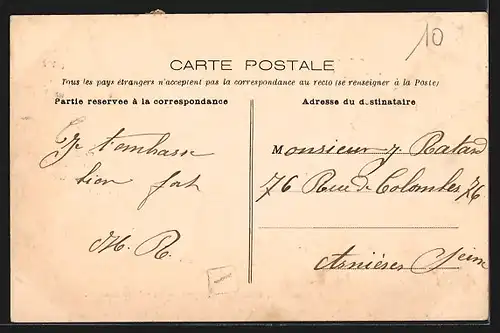 10
CARTE POSTALE
Tous les pays étrangers n'acceptent pas la correspondance au recto (se renseigner à la Poste)
Partie reservee à la correspondance
Adresse du destinataire
Je t'embrasse
bien fort
M. R.
Monsieur J Ratard
76 Rue de Colombes 76
Asnières Seine